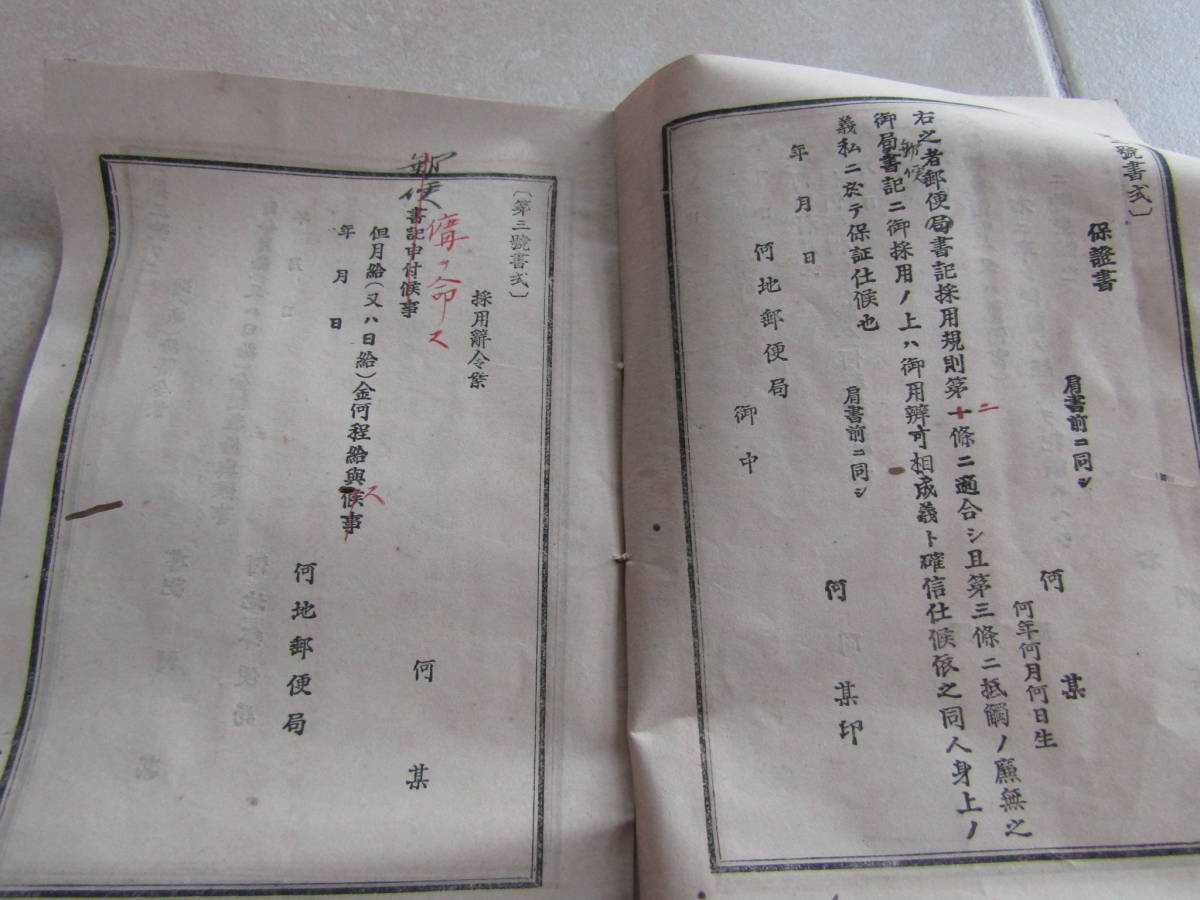 號書式〕
保證書
肩書前ニ同シ
何某
何年何月何日生
右之者郵便局書記採用規則第十條ニ適合シ且第三條ニ抵觸ノ廉無之
二
御局書記ニ御採用ノ上ハ御用辨可相成義ト確信仕候依之同人身上ノ
郵便
義私ニ於テ保証仕候也
肩書前ニ同シ
年月日
何某印
何地郵便局
御中
〔第三號書式〕
採用辭令案
何某
郵便
書記申付候事
ヲ命ス
但月給(又ハ日給)金何程給與候事
ス
年月日
何地郵便局